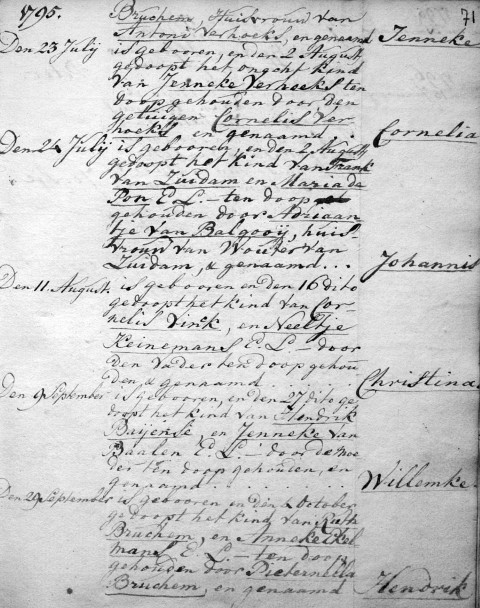 1795.
71
Bruchem, Huisvrouw van
Antoni Verhoeks, en genaamd Jenneke
Den 23 July is gebooren, en den 2 August
gedoopt het ongeht kind
van Jenneke Verhoeks ten
doop gehouden door den
getuigen Cornelis Ver-
hoeks en genaamd . Cornelia
Den 24 July is gebooren, en den 2 August
gedoopt het kind van Frank
van Zuidam en Maria de
Pon E. L. — ten doop
gehouden door Adriaan-
tje van Balgooij, huis-
vrouw van Wouter van
Zuidam, & genaamd . . . Johannis
Den 11 August is gebooren en den 16 dito
gedoopt het kind van Cor-
nelis Vink, en Neeltje
Keinemans E. L. — door
den Vader ten doop gehou-
den, & genaamd . . . . . Christina.
Den 9 September is gebooren, en den 27 dito ge-
doopt het kind van Hendrik
Baijense en Jenneke van
Baalen E. L. — door de moe-
der ten doop gehouden, en
genaamd . . . . . Willemke.
Den 29 September is gebooren en den 4 October
gedoopt het kind van Ruth
Bruchem, en Anneke Ekel-
mans E. L. — ten doop
gehouden door Pieternella
Bruchem, en genaamd Hendrik